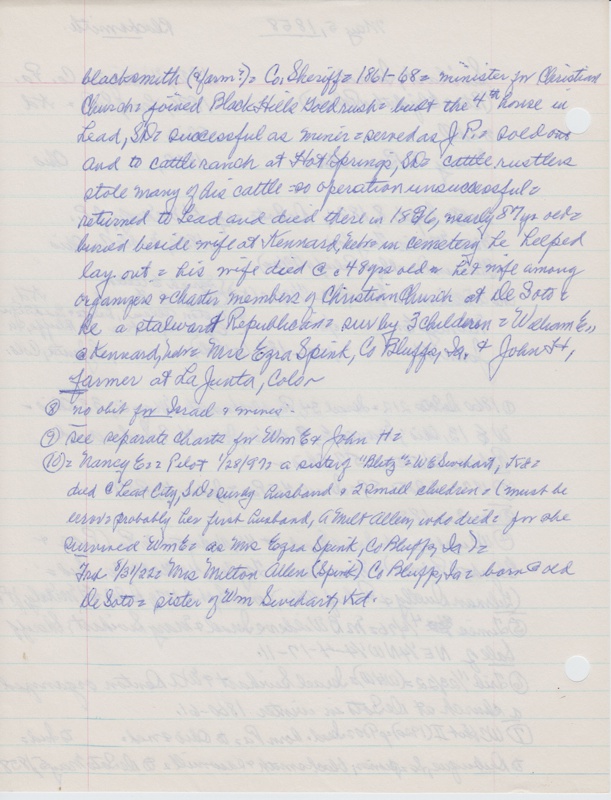 blacksmith (& farm?) = Co. Sheriff = 1861-68 = minister for Christian
Church = joined Black Hills Gold rush = built the 4th house in
Lead, SD = successful as miner = served as J.P. = sold out
and to cattle ranch at Hot Springs, SD = cattle rustlers
stole many of his cattle = so operation unsuccessful =
returned to Lead and died there in 1896, nearly 87 yrs old =
buried beside wife at Kennard, Nebr = in cemetery he helped
lay out = his wife died @ 48 yrs old = he & wife among
organizers & Charter members of Christian Church at De Soto =
he a stalwart Republican = surv by 3 children = William E.,
@ Kennard, Nebr = Mrs Ezra Spink, Co Bluffs, Ia. & John H,
farmer at La Junta, Color
⑧ no obit for Israel & minor.
⑨ See separate charts for Wm E & John H =
⑩ = Nancy E. = Pilot 1/28/97 = a sister of "Betz" = W E Swihart, Kd =
died @ Lead City, SD = survby husband & 2 small children = (must be
error = probably her first husband, A Milt Allen, who died = for she
survived Wm E = as Mrs Ezra Spink, Co Bluffs, Ia) =
Trd 8/31/22 = Mrs Milton Allen (Spink) Co Bluffs, Ia = born @ old
De Soto = sister of Wm Swihart, Kd.